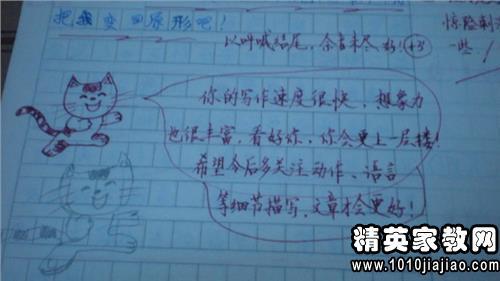 把我变回原形吧！
以呐喊结尾，余音未尽好！+3
惊险刺
一些！
你的写作速度很快，想象力
也很丰富，看好你，你会更上一层楼！
希望今后多关注动作、语言
等细节描写，文章才会更好！
精英家教网
www.1010jiajiao.com